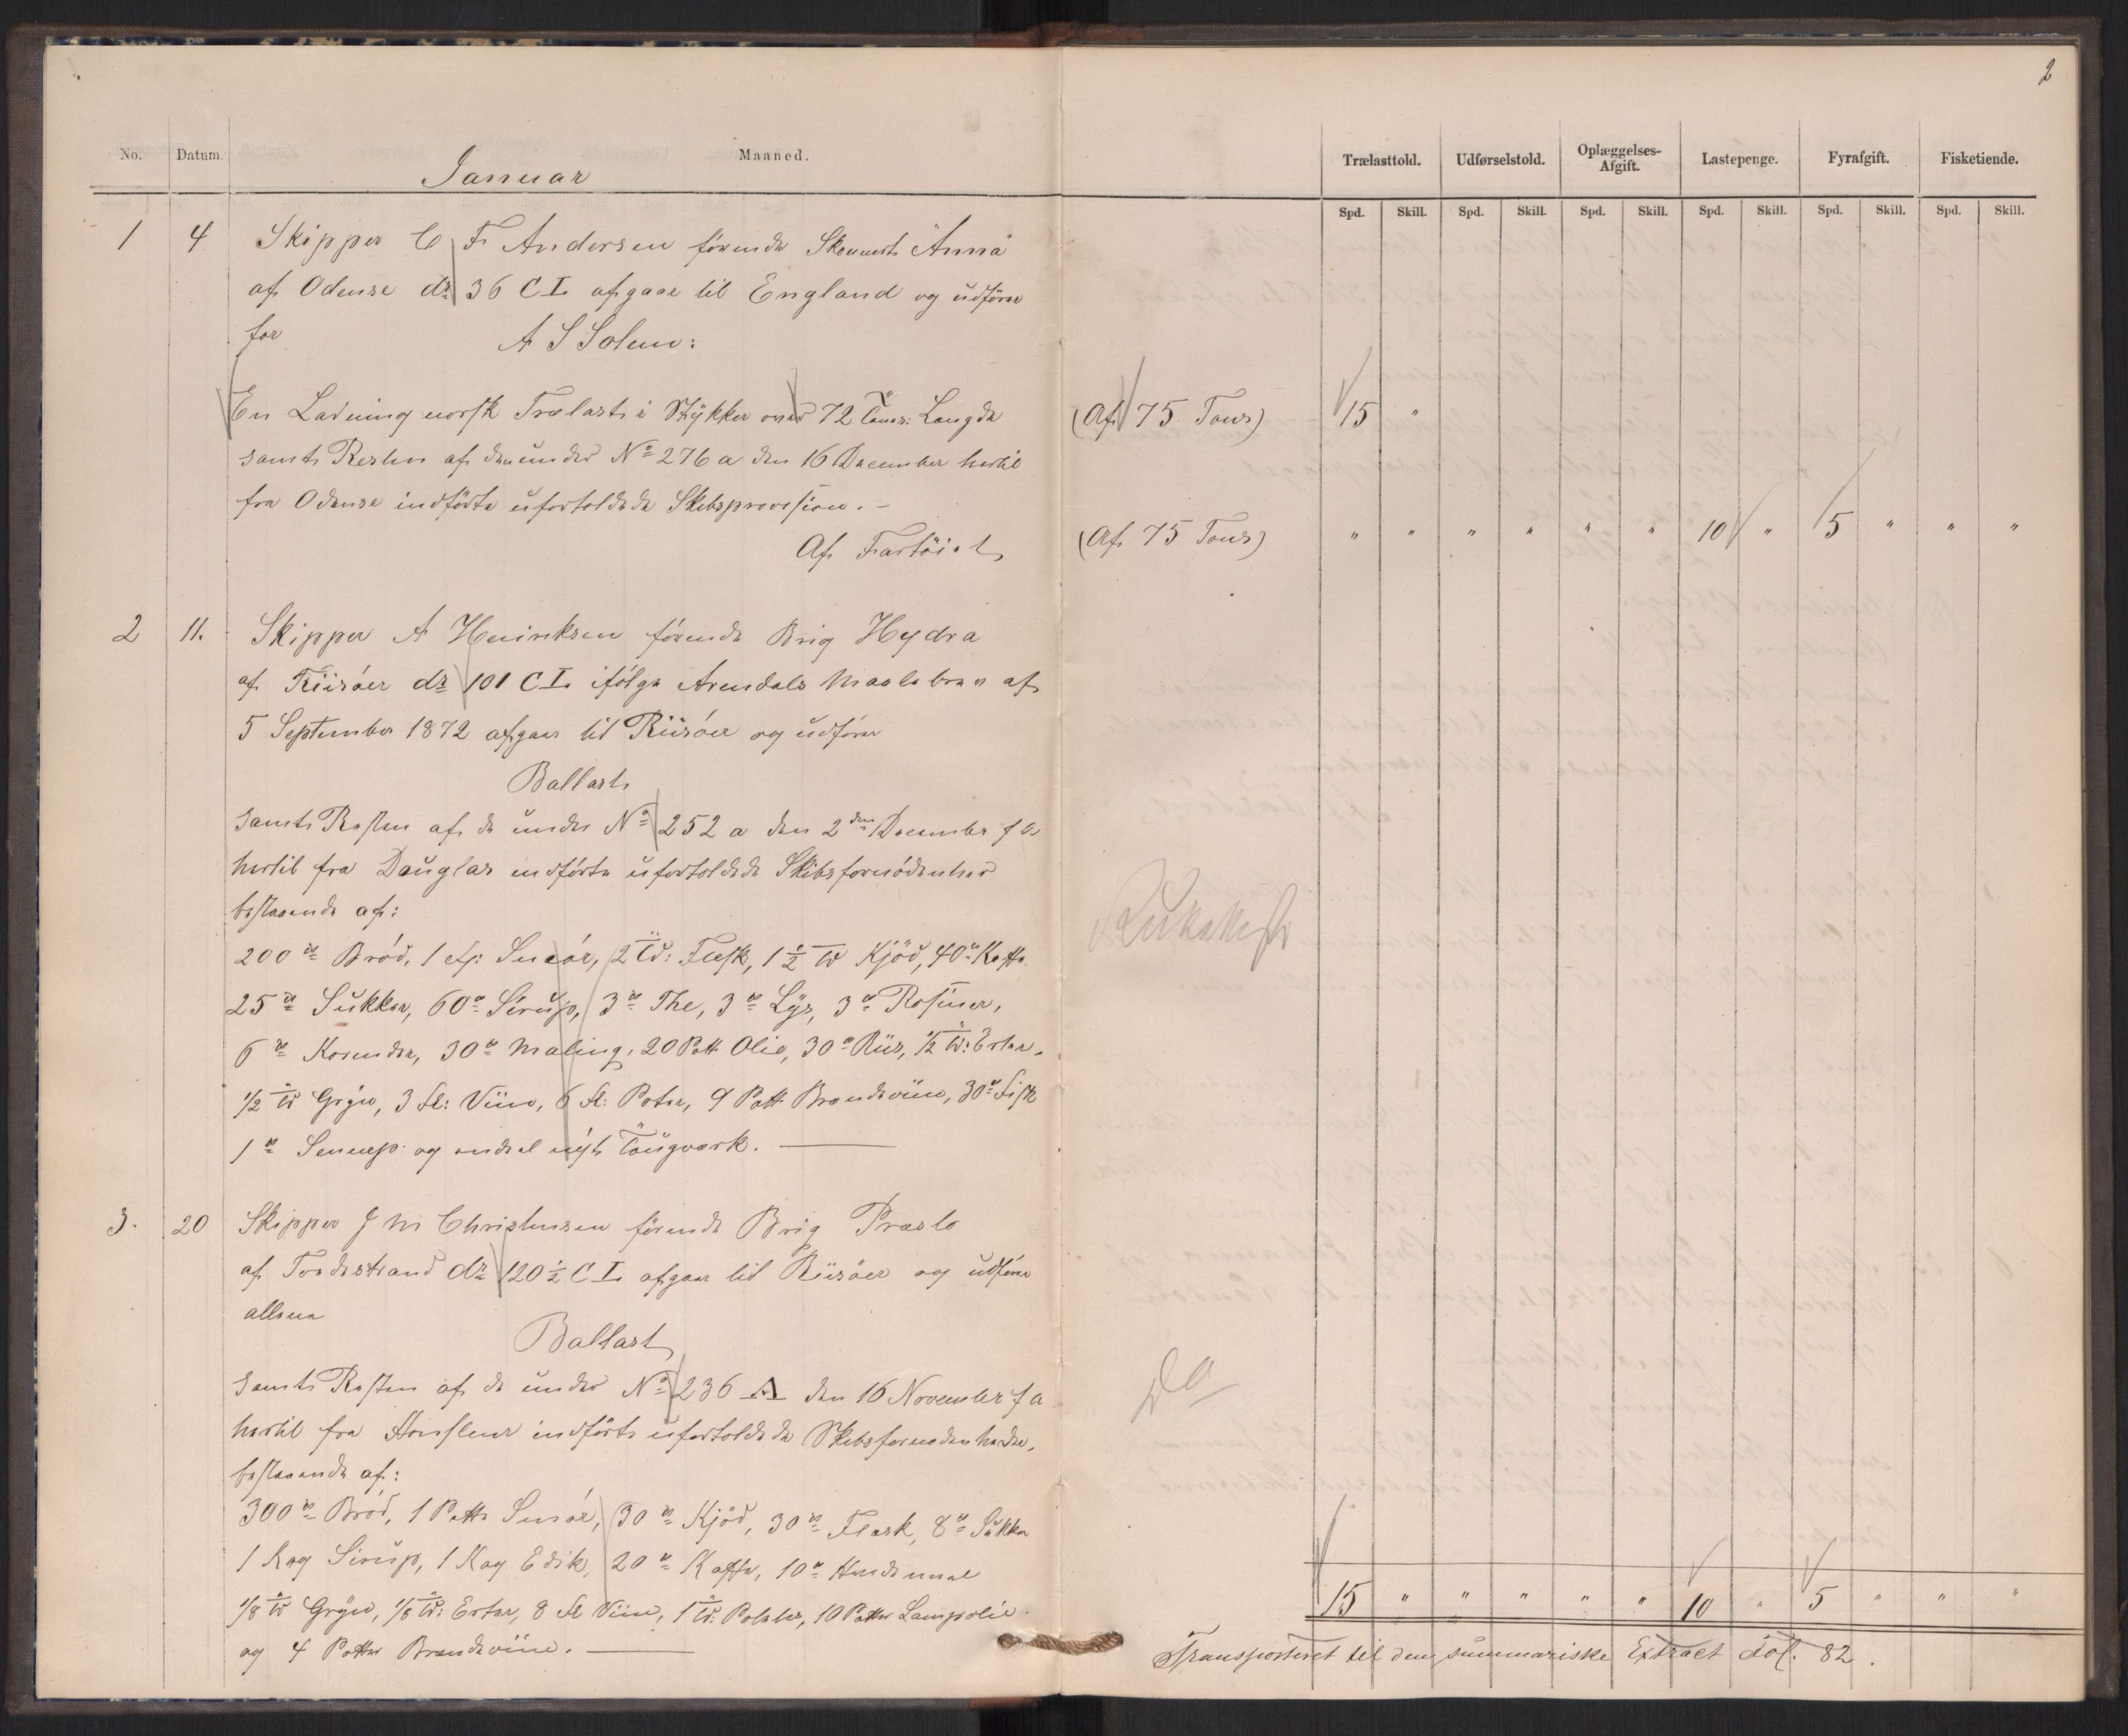 2
No. Datum. Januar Maaned.
Trælasttold. Udførselstold. Oplæggelses-Afgift. Lastepenge. Fyrafgift. Fisketiende.
Spd. Skill. Spd. Skill. Spd. Skill. Spd. Skill. Spd. Skill. Spd. Skill.
1 4 Skipper C F Andersen förende Skonnert "Anna"
af Odense dr 36 CL afgaar til England og udförer
for A S Solem:
En Ladning norsk Trælast i Stÿkker over 72 Tom: Længde (Af 75 Tons) 15 "
samt Resten af den under No 276 a den 16 December hertil
fra Odense indförte ufortoldede Skibsprovision. -
Af Fartöiet (Af 75 Tons) " " " " " " 10 " 5 " " "
2 11. Skipper A Henriksen förende Brig Hydra
af Riisöer dr 101 CL ifölge Arendals Maalebrev af
5 September 1872 afgaar til Riisöer og udförer
Ballast
samt Resten af de under No 252 a den 2den December f a
hertil fra Douglas indförte ufortoldede Skibsfornödenheder
bestaaende af:
200 ℔ Bröd, 1 Smör, 2 Td: Flesk, 1 1/2 Td Kjöd, 40 ℔ Kaffe
25 ℔ Sukker, 60 ℔ Sirup, 3 ℔ The, 3 ℔ Lÿs, 3 ℔ Rosiner,
6 ℔ Korender, 30 ℔ Maling, 20 Pott Olie, 30 ℔ Riis, 1/2 Td: Erter,
1/2 Td Grÿn, 3 Fl: Viin, 6 Fl: Porter, 9 Pott Brændeviin, 30 ℔ Fisk
1 ℔ Sennep og endeel nÿt Tougværk.
3. 20 Skipper J M Christensen förende Brig Præsto
af Tvedestrand dr 120 1/2 CL afgaar til Riisöer og udförer
allene
Ballast
samt Resten af de under No 236 A den 16 November f a
hertil fra Honfleur indförte ufortoldede Skibsfornödenheder,
bestaaende af:
Do
300 ℔ Bröd, 1 Potte Smör, 30 ℔ Kjöd, 30 ℔ Flesk, 8 ℔ Sukker
1 Kag Sirup, 1 Kag Edik, 20 ℔ Kaffe, 10 ℔
1/8 Td Grÿn, 1/8 Td: Erter, 8 Fl Viin, 1 Td: Poteter, 10 Potter Lampolie
og 4 Potter Brændeviin.
15 " " " " " 10 " 5 " " "
Transporteret til den summariske Extract Fol. 82.